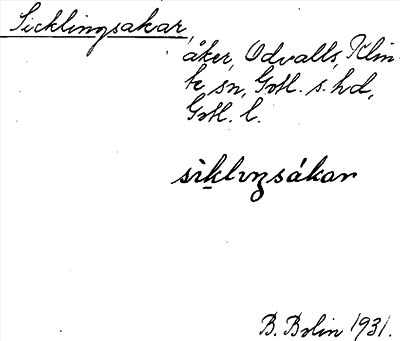 Sicklingsakar,
åker, Odvalls, Klin-
te sn, Gotl. s. hd,
Gotl. l.
siklıŋsákar
B. Bolin 1931.